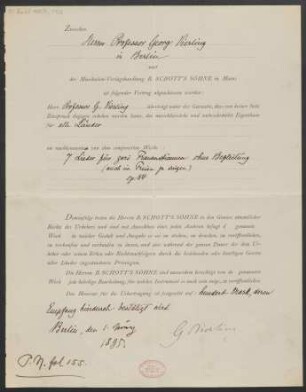 Zwischen
Herrn Professor Georg Vierling
in Berlin
und
der Musikalien-Verlagshandlung B. SCHOTT'S SÖHNE in Mainz
ist folgender Vertrag abgeschlossen worden:
Herr Professor G. Vierling überträgt unter der Garantie, dass von keiner Seite
Einspruch dagegen erhoben werden kann, das ausschliessliche und unbeschränkte Eigenthum
für alle Länder
an nachbenanntem von ihm componirten Werke:
7 Lieder für zwei Frauenstimmen ohne Begleitung
(auch im Freien zu singen)
op. 84
Demzufolge treten die Herren B. SCHOTT'S SÖHNE in den Genuss sämmtlicher
Rechte des Urhebers und sind mit Ausschluss eines jeden Anderen befugt genanntes Werk
in beliebiger Gestalt und Ausgabe
zu verkaufen und verkaufen zu lassen, und dies während der ganzen Dauer des dem Urheber
oder seinen Erben oder Rechtsnachfolgern durch die
Die Herren B. SCHOTT'S SÖHNE sind ausserdem berechtigt von
Werk jede beliebige Bearbeitung, für welches Instrument es auch sein möge, zu veröffentlichen.
Das Honorar für die Uebertragung ist festgesetzt auf: hundert Mark, deren
Empfang hierdurch bestätigt wird
Berlin, den 1. März
1895.
G Vierling
P. N. fol 155.